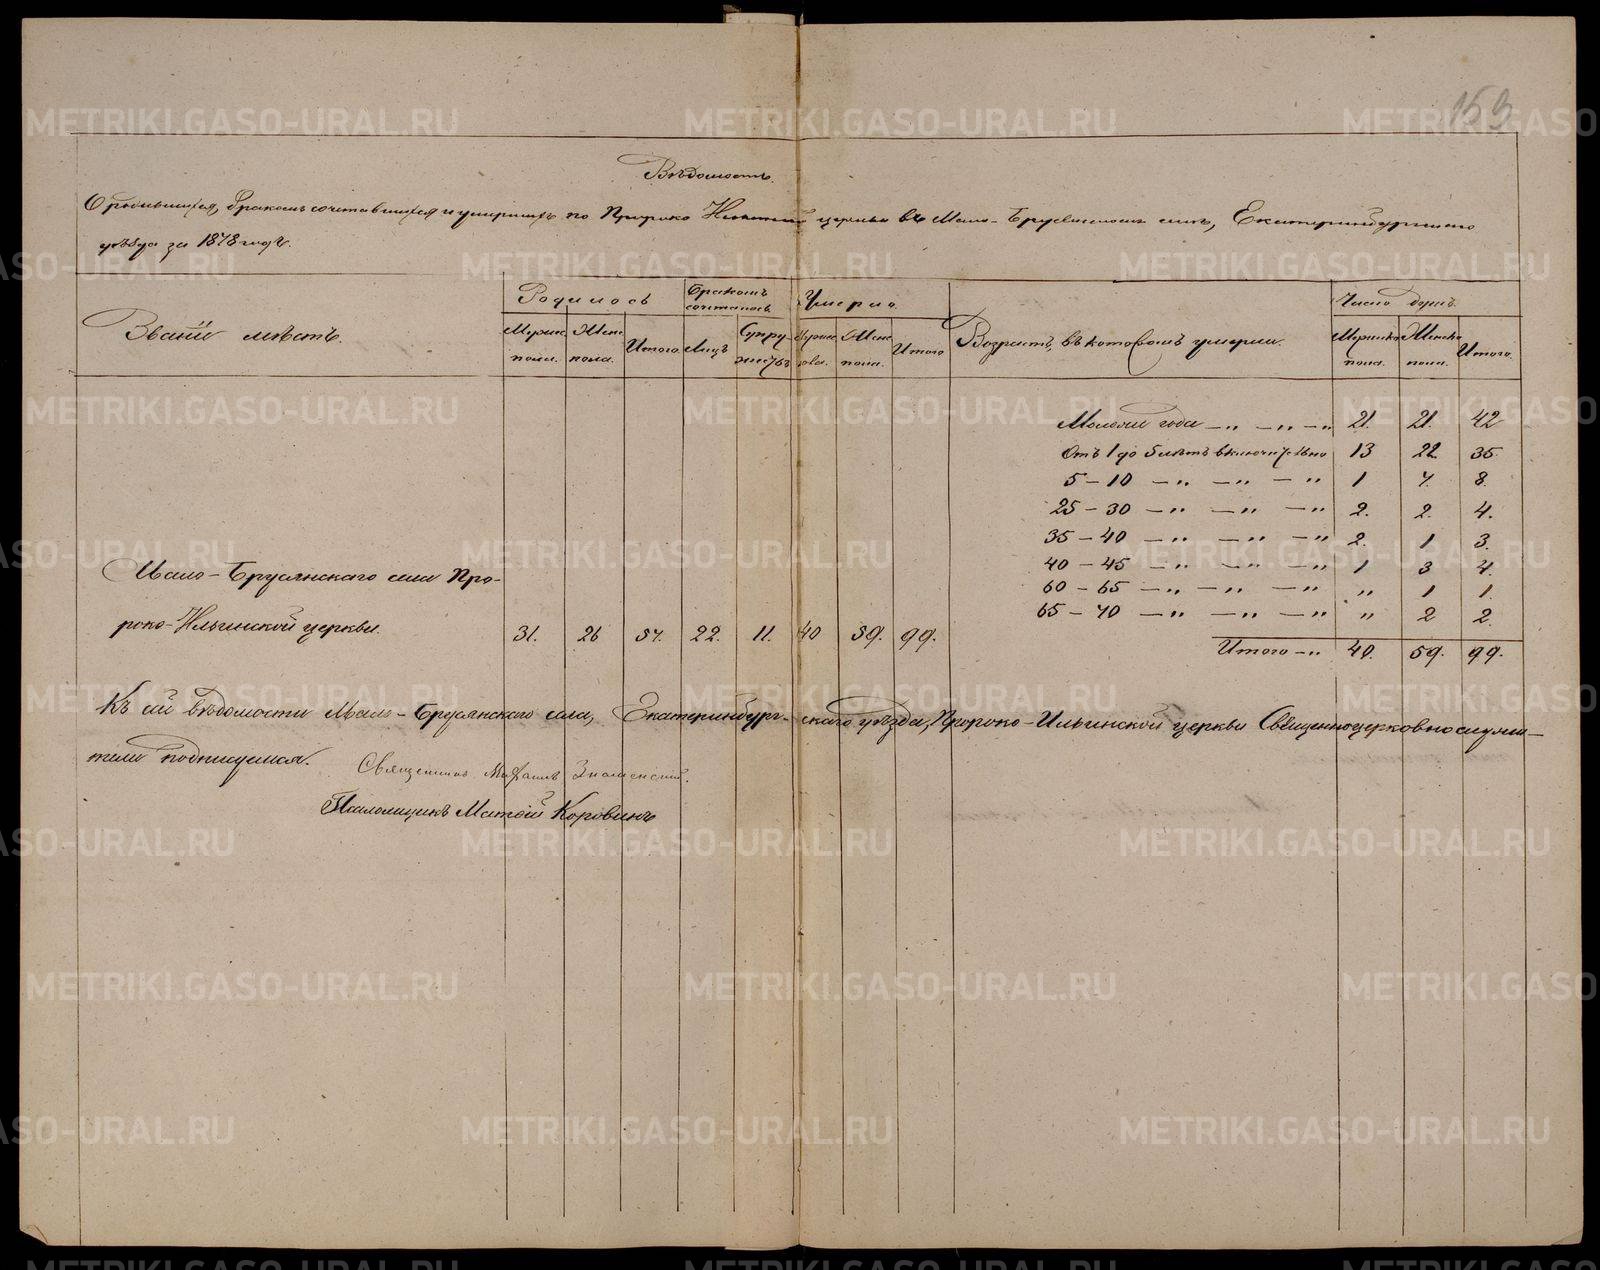 153
Вѣдомость.
О родившихся, бракомъ сочетавшихся и умершихъ по Пророко Ильинской церкви въ Мало-Брусянскомъ селѣ, Екатеринбургскаго
уѣзда за 1878 годъ.
Званіе мѣстъ.
Родилось
Бракомъ сочеталось
Умерло
Возрастъ, въ которомъ умерли.
Число душъ.
Мужск. пола.
Женс. пола.
Итого
Лицъ
Супружествъ
Мужск. пола.
Женс. пола.
Итого
Мужска пола.
Женска пола.
Итого.
Моложе года —„ —„ —„ 21. 21. 42
Отъ 1 до 5 лѣтъ включительно 13 22. 35.
5 – 10 —„ —„ —„ 1 7. 8.
25 – 30 —„ —„ —„ 2. 2. 4.
35 – 40 —„ —„ —„ 2. 1 3.
40 – 45 —„ —„ —„ 1 3 4.
60 – 65 —„ —„ —„ „ 1 1.
65 – 70 —„ —„ —„ „ 2 2.
Мало-Брусянскаго села Про-
роко-Ильинской церкви. 31. 26 57. 22. 11. 40 59. 99.
Итого —„ 40. 59. 99.
Къ сей вѣдомости Мало-Брусянскаго села, Екатеринбург-скаго уѣзда, Пророко-Ильинской церкви Священноцерковнослужи—
тели подписуемся.
Священникъ Михаилъ Знаменскій.
Псаломщикъ Матѳій Коровинъ
METRIKI.GASO-URAL.RU